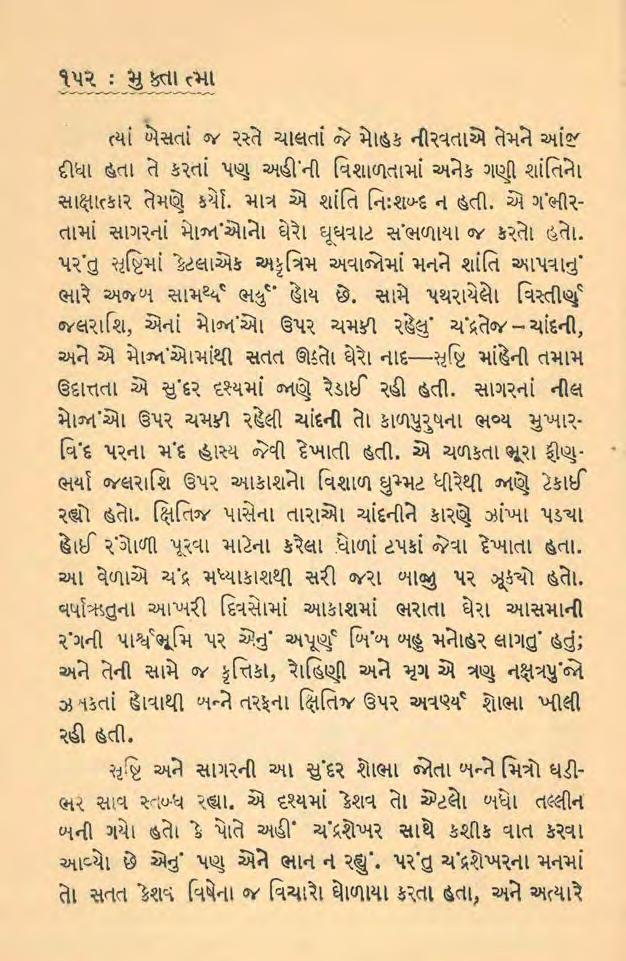 ૧૫૨ : મુક્તાત્મા
ત્યાં બેસતાં જ રસ્તે ચાલતાં જે મોહક નીરવતાએ તેમને આંજી
દીધા હતા તે કરતાં પણ અહીંની વિશાળતામાં અનેક ગણી શાંતિનો
સાક્ષાત્કાર તેમણે કર્યો. માત્ર એ શાંતિ નિઃશબ્દ ન હતી. એ ગંભીર-
તામાં સાગરનાં મોજાંઓનો ઘેરો ઘૂઘવાટ સંભળાયા જ કરતો હતો.
પરંતુ સૃષ્ટિમાં કેટલાએક અકૃત્રિમ અવાજોમાં મનને શાંતિ આપવાનું
ભારે અજબ સામર્થ્ય ભર્યું હોય છે. સામે પથરાયેલો વિસ્તીર્ણ
જલરાશિ, એનાં મોજાંઓ ઉપર ચમકી રહેલું ચંદ્રતેજ – ચાંદની,
અને એ મોજાંઓમાંથી સતત ઊઠતો ઘેરો નાદ—સૃષ્ટિ માંહેની તમામ
ઉદાત્તતા એ સુંદર દશ્યમાં જાણે રેડાઈ રહી હતી. સાગરનાં નીલ
મોજાંઓ ઉપર ચમકી રહેલી ચાંદની તો કાળપુરુષના ભવ્ય મુખાર-
વિંદ પરના મંદ હાસ્ય જેવી દેખાતી હતી. એ ચળકતા ભૂરા ફીણ-
ભર્યા જલરાશિ ઉપર આકાશનો વિશાળ ઘુમ્મટ ધીરેથી જાણે ટેકાઈ
રહ્યો હતો. ક્ષિતિજ પાસેના તારાઓ ચાંદનીને કારણે ઝાંખા પડયા
હોઈ રંગોળી પૂરવા માટેના કરેલા ધોળાં ટપકાં જેવા દેખાતા હતા.
આ વેળાએ ચંદ્ર મધ્યાકાશથી સરી જરા બાજુ પર ઝૂકયો હતો.
વર્ષાઋતુના આખરી દિવસોમાં આકાશમાં ભરાતા ઘેરા આસમાની
રંગની પાર્શ્વભૂમિ પર એનું અપૂર્ણ બિંબ બહુ મનોહર લાગતું હતું;
અને તેની સામે જ કૃત્તિકા, રોહિણી અને મૃગ એ ત્રણ નક્ષત્રપુંજો
ઝબકતાં હોવાથી બન્ને તરફના ક્ષિતિજ ઉપર અવર્ણ્ય શોભા ખીલી
રહી હતી.
સૃષ્ટિ અને સાગરની આ સુંદર શોભા જોતા બન્ને મિત્રો ઘડી-
ભર સાવ સ્તબ્ધ રહ્યા. એ દશ્યમાં કેશવ તો એટલો બધો તલ્લીન
બની ગયો હતો કે પોતે અહીં ચંદ્રશેખર સાથે કશીક વાત કરવા
આવ્યો છે એનું પણ એને ભાન ન રહ્યું. પરંતુ ચંદ્રશેખરના મનમાં
તો સતત કેશવ વિષેના જ વિચારો ઘોળાયા કરતા હતા, અને અત્યારે